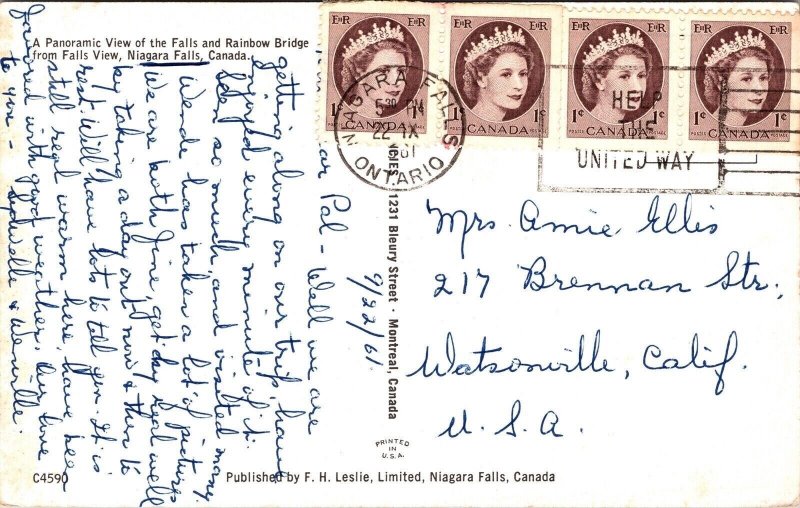 A Panoramic View of the Falls and Rainbow Bridge
from Falls View, Niagara Falls, Canada.
E II R E II R
1¢ 1¢
POSTES POSTAGE
CANADA
E II R E II R
1¢
CANADA
E II R E II R
1¢
CANADA
E II R E II R
1¢ 1¢
CANADA
NIAGARA FALLS
5 30 PM
22 IX
61
ONTARIO
HELP
THE
UNITED WAY
9/22/61.
Dear Pal - Well we are
getting along on our trip, have
enjoyed every minute of it.
See so much, and visited many.
Wende has taken a lot of pictures
We are both fine, get day real well
by taking a day out now & then to
rest. Will have lots to tell you. It is
still real warm here, have been
favored with good weather. Our love
to you -
& Wenville.
Mrs. Amie Ellis
217 Brennan Str.,
Watsonville, Calif.
U. S. A.
1231 Bleury Street · Montreal, Canada
PRINTED
IN
U.S.A.
C4590
Published by F. H. Leslie, Limited, Niagara Falls, Canada